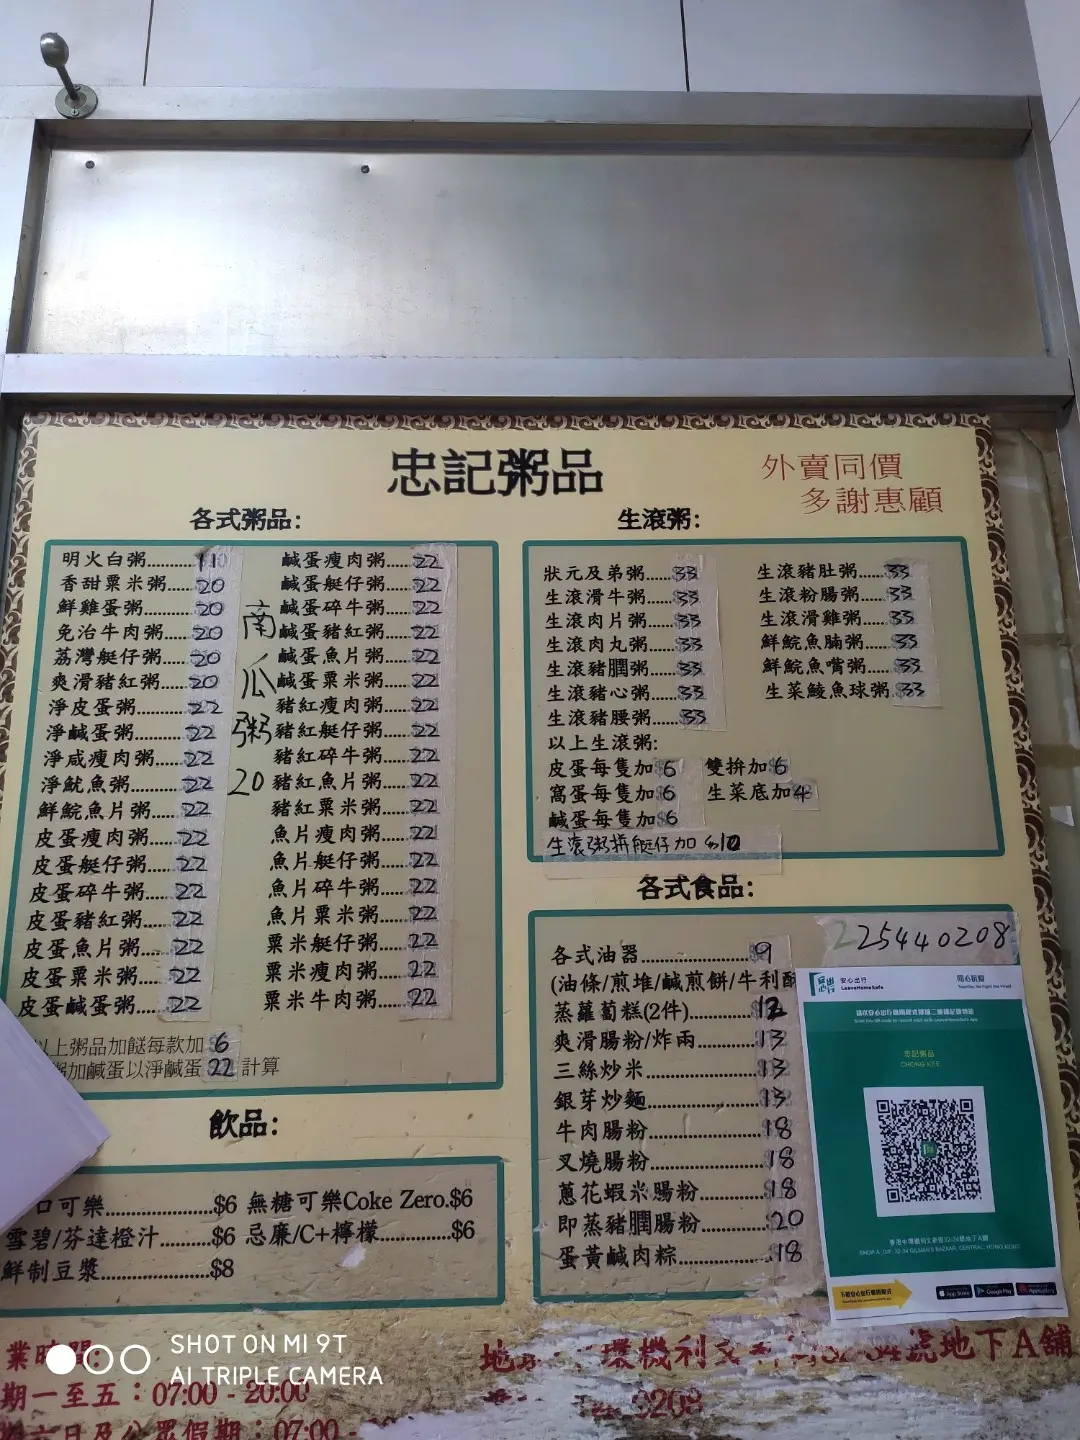 忠記粥品
外賣同價
多謝惠顧
各式粥品:
明火白粥..........10
香甜粟米粥....20
鮮雞蛋粥........20
免治牛肉粥.....20
荔灣艇仔粥.....20
爽滑豬紅粥.....20
淨皮蛋粥........22
淨鹹蛋粥........22
淨咸瘦肉粥.....22
淨魷魚粥........22
鮮鯇魚片粥.....22
皮蛋瘦肉粥.....22
皮蛋艇仔粥.....22
皮蛋碎牛粥.....22
皮蛋豬紅粥.....22
皮蛋魚片粥.....22
皮蛋粟米粥.....22
皮蛋鹹蛋粥.....22
南瓜粥 20
鹹蛋瘦肉粥.....22
鹹蛋艇仔粥.....22
鹹蛋碎牛粥.....22
鹹蛋豬紅粥.....22
鹹蛋魚片粥.....22
鹹蛋粟米粥.....22
豬紅瘦肉粥.....22
豬紅艇仔粥.....22
豬紅碎牛粥.....22
豬紅魚片粥.....22
豬紅粟米粥.....22
魚片瘦肉粥.....22
魚片艇仔粥.....22
魚片碎牛粥.....22
魚片粟米粥.....22
粟米艇仔粥.....22
粟米瘦肉粥.....22
粟米牛肉粥.....22
以上粥品加餸每款加 6
粥加鹹蛋以淨鹹蛋 22 計算
生滾粥:
狀元及弟粥.....33
生滾滑牛粥.....33
生滾肉片粥.....33
生滾肉丸粥.....33
生滾豬膶粥.....33
生滾豬心粥.....33
生滾豬腰粥.....33
生滾豬肚粥.....33
生滾粉腸粥.....33
生滾滑雞粥.....33
鮮鯇魚腩粥.....33
鮮鯇魚嘴粥.....33
生菜鯪魚球粥.33
以上生滾粥:
皮蛋每隻加$6 雙拚加$6
窩蛋每隻加$6 生菜底加4
鹹蛋每隻加$6
生滾粥拼艇仔加 $10
各式食品:
各式油器....................9
(油條/煎堆/鹹煎餅/牛利酥
蒸蘿蔔糕(2件)..........12
爽滑腸粉/炸兩.........13
三絲炒米..................13
銀芽炒麵..................13
牛肉腸粉..................18
叉燒腸粉..................18
蔥花蝦米腸粉..........18
即蒸豬膶腸粉..........20
蛋黃鹹肉粽..............18
225440208
安心出行
LeaveHomeSafe
同心抗疫
忠記粥品
CHONG KEE
香港中環機利文新街32-34號地下A舖
SHOP A, G/F, 32-34 GILMAN'S BAZAAR, CENTRAL, HONG KONG
App Store
Google Play
飲品:
口可樂................$6 無糖可樂Coke Zero.$6
雪碧/芬達橙汁.........$6 忌廉/C+檸檬............$6
鮮制豆漿.................$8
業時間:
期一至五：07:00 - 20:00
六日及公眾假期：07:00 -
地 環機利文新街32-34號地下A舖
0208
SHOT ON MI 9T
AI TRIPLE CAMERA